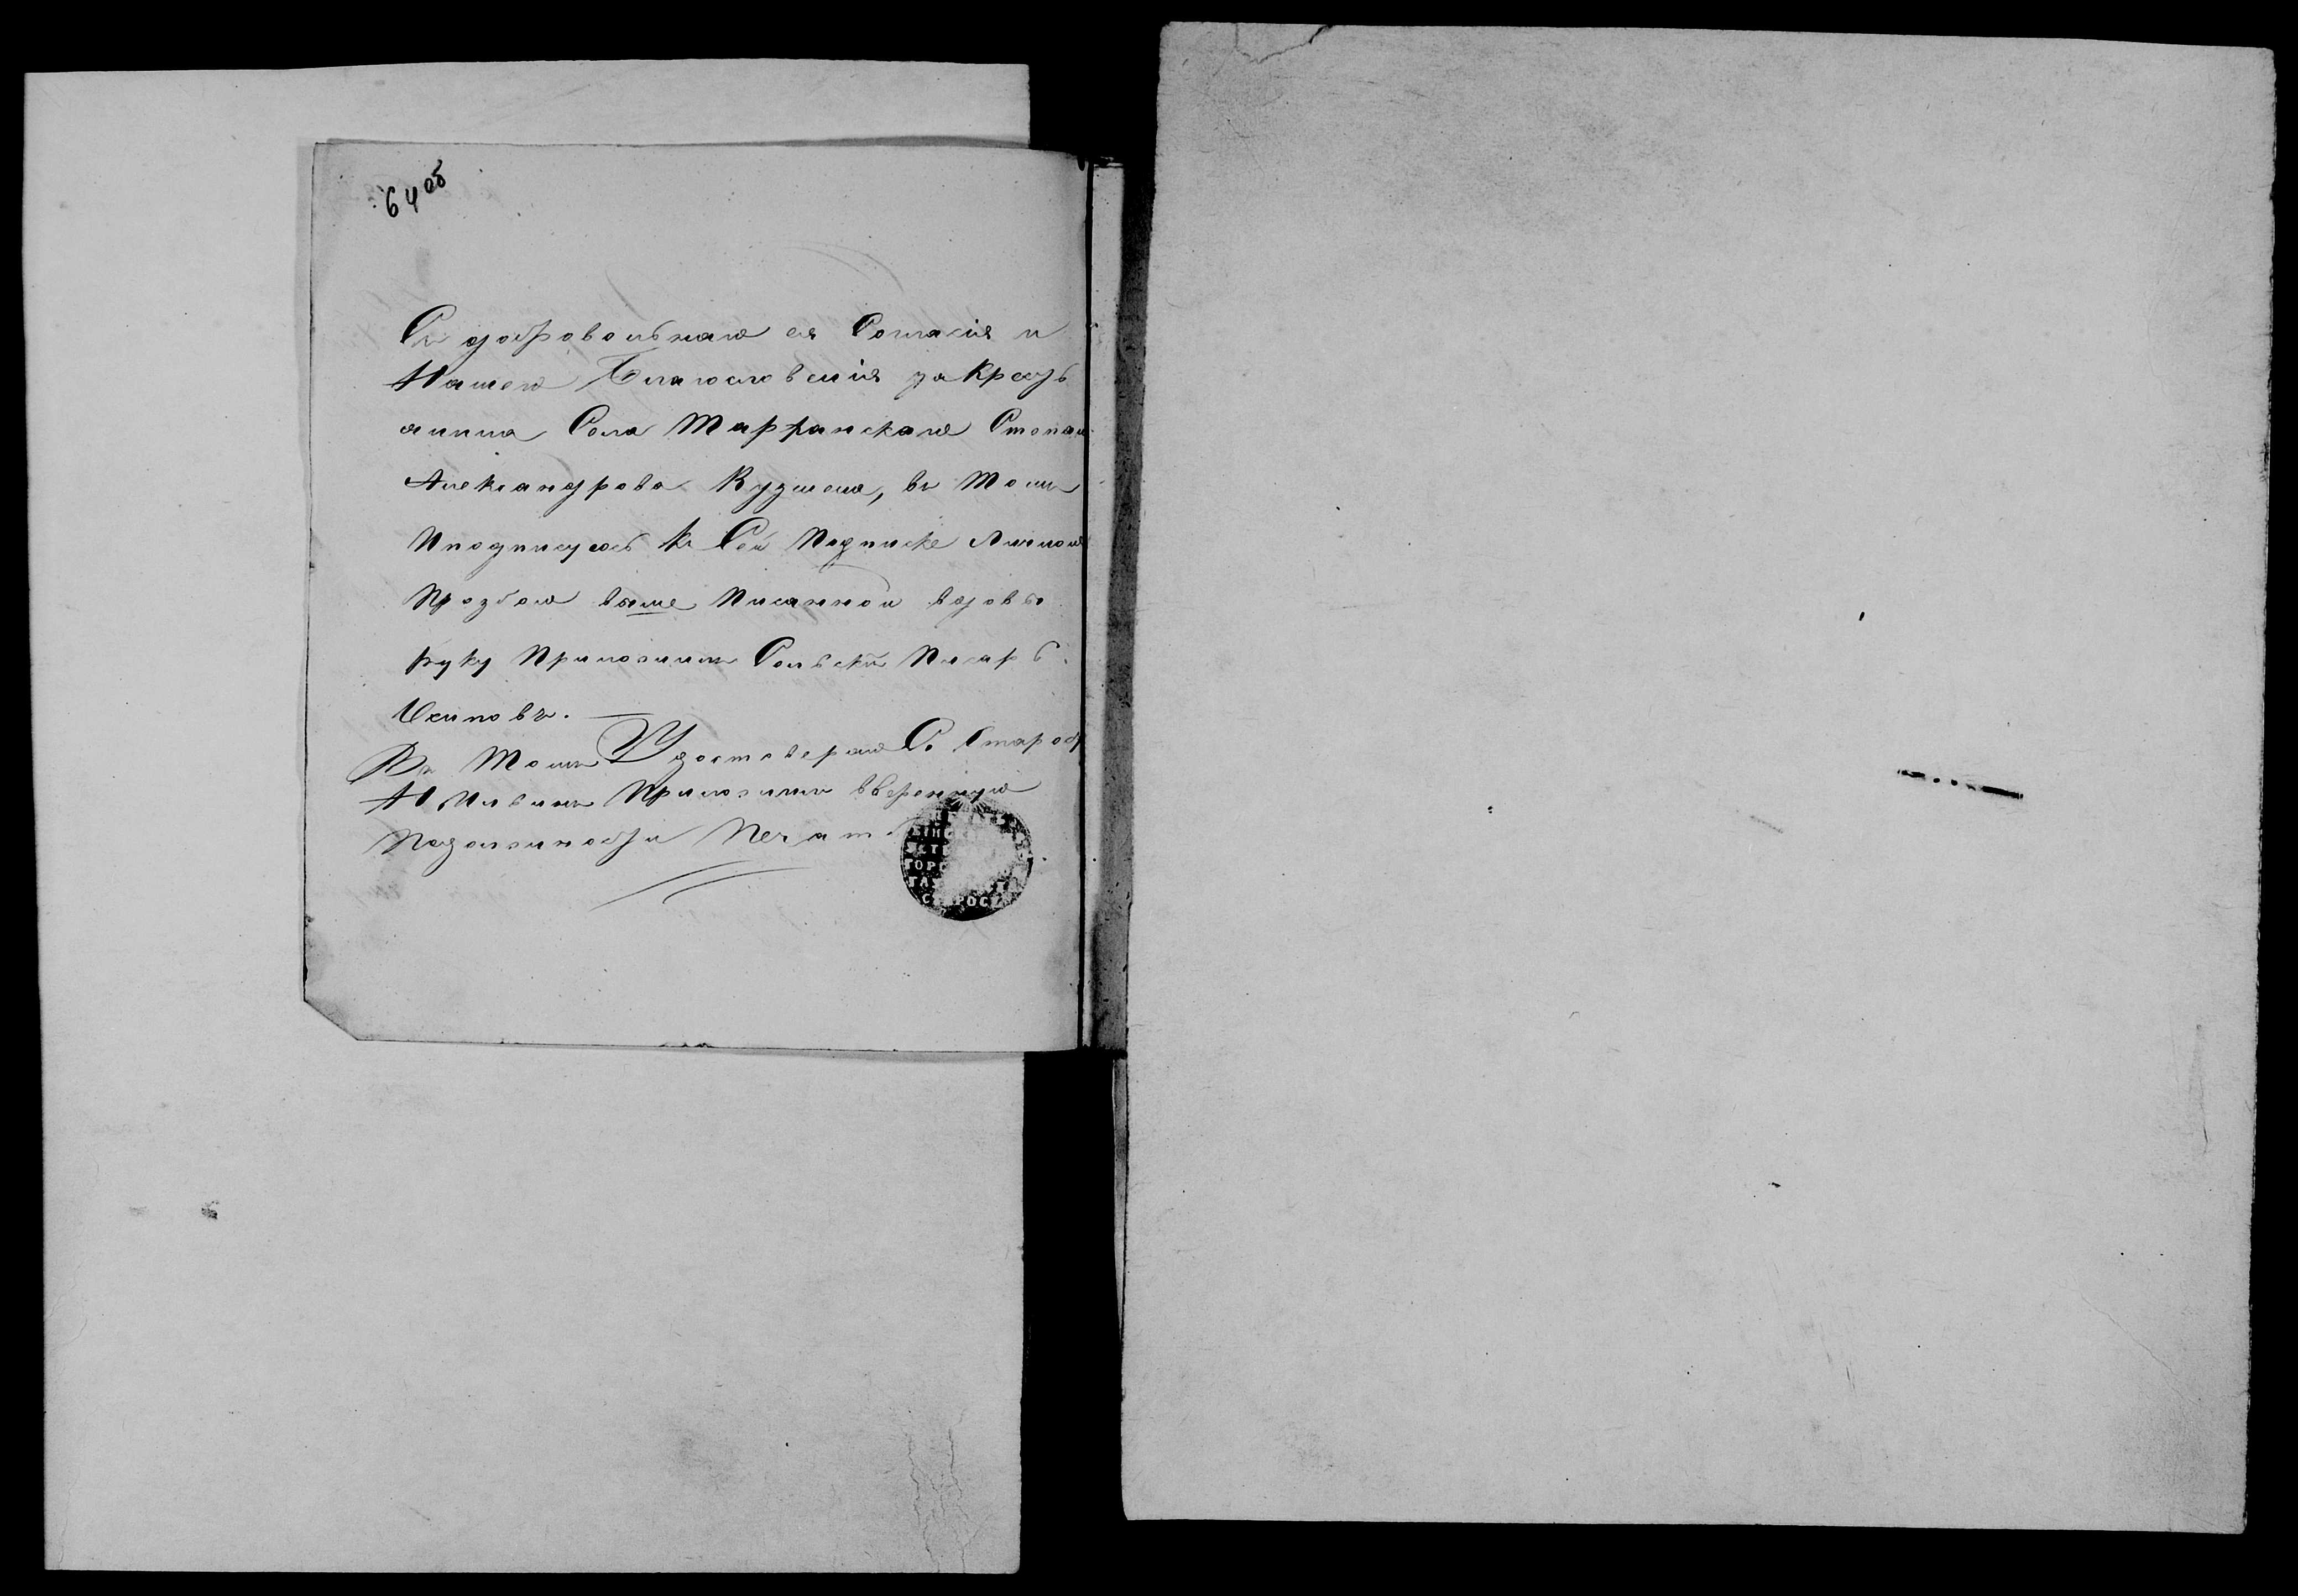 64 об
Съ добровольнаго ея Согласія и
Нашего Благословенія за Кресть
янина Села Тарханскаго Степан
Александрова Кузмена, въ Томъ
Иподписуюсь К Сей Подписке Личною
Прозбою выше Писанной вдовы
руку Приложилъ Сельскій Писарь
Осиповъ.
Въ Томъ Удостоверяю С. Старос
Приложилъ вверенную
Подолжности Печать
СТ
ГОР
ТА
СТАРОС